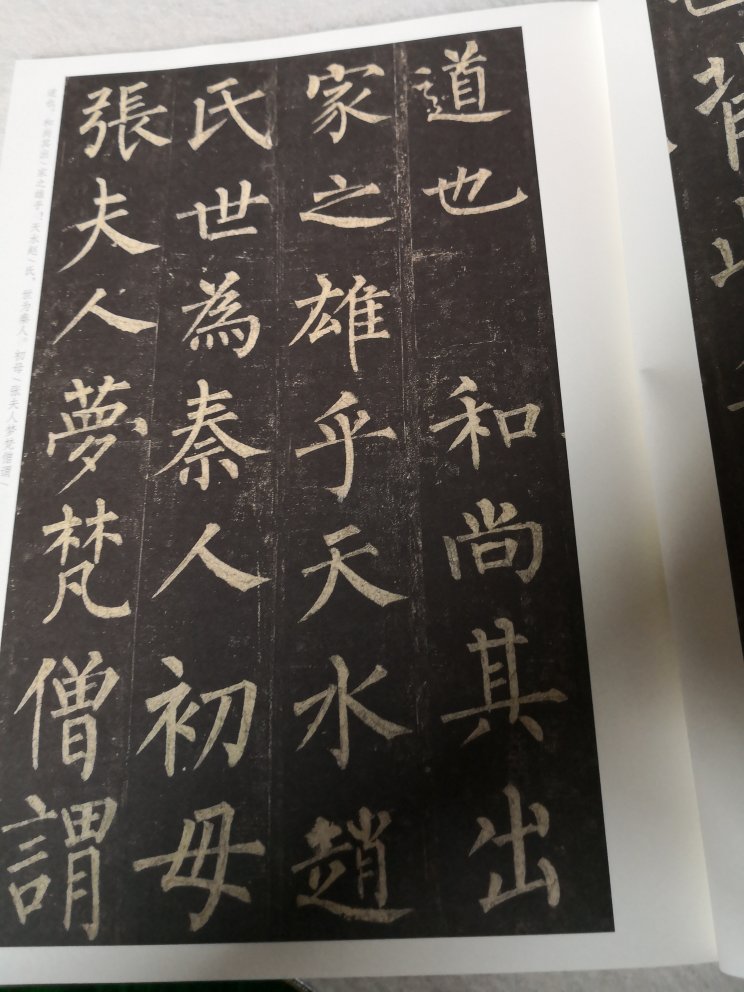 道也　和尚其出
家之雄乎天水趙
氏世為秦人初母
張夫人夢梵僧謂
道也。和尚其出/家之雄乎！天水赵/氏，世为秦人。初母/张夫人梦梵僧谓/